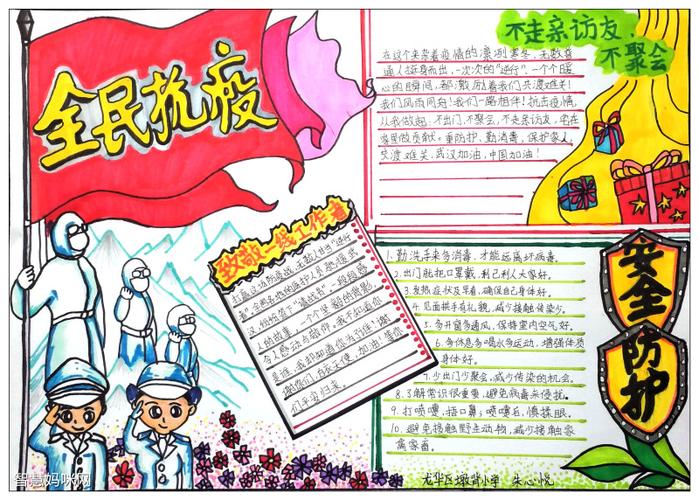 全民抗疫
不走亲访友，
不聚会
在这个夹带着疫情的凛冽寒冬，无数普
通人挺身而出，一次次的“逆行”，一个个暖
心的瞬间，都激励着我们共渡难关！
我们风雨同舟！我们一路相伴！抗击疫情，
从我做起，不出门，不聚会，不走亲访友，宅在
家里做贡献。重防护，勤消毒，保护家人，
共渡难关，武汉加油，中国加油！
致敬一线工作者
打赢这场防疫战，无数人担当“逆行
者”
人的故事，一个个坚毅的背影，
令人感动与敬仰。我不知道你
是谁，我却知道你为了谁！谢
谢你们，白衣天使，加油！等你
们平安归来。
安全
防护
1.勤洗手来多消毒，才能远离坏病毒。
2.出门就把口罩戴，利己利人大家好。
3.发热症状及早看，确保自己身体好。
4.见面拱手有礼貌，减少接触传染少。
5.多开窗多通风，保持室内空气好。
6.多休息多喝水多运动，增强体质
身体好。
7.少出门少聚会，减少传染的机会。
8.了解常识很重要，避免病毒来侵扰。
9.打喷嚏，捂口鼻；喷嚏后，慎揉眼。
10.避免接触野生动物，减少接触家
禽家畜。
龙华区墩背小学 朱心悦
智慧妈咪网